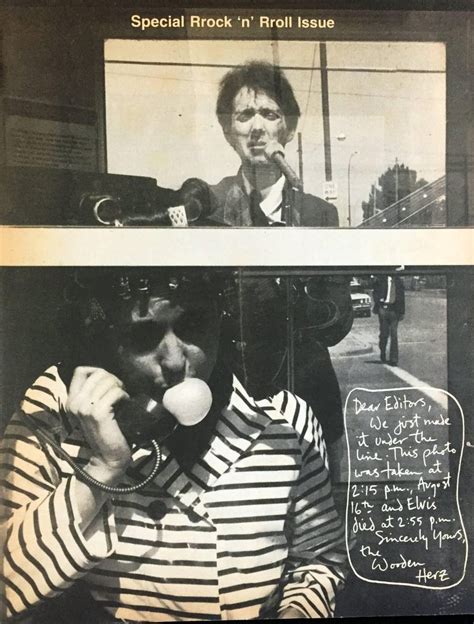 Special Rrock 'n' Rroll Issue
Dear Editors,
We just made
it under the
line. This photo
was taken at
2:15 p.m., August
16th and Elvis
died at 2:55 p.m.
Sincerely Yours,
the
Wooden
Herz